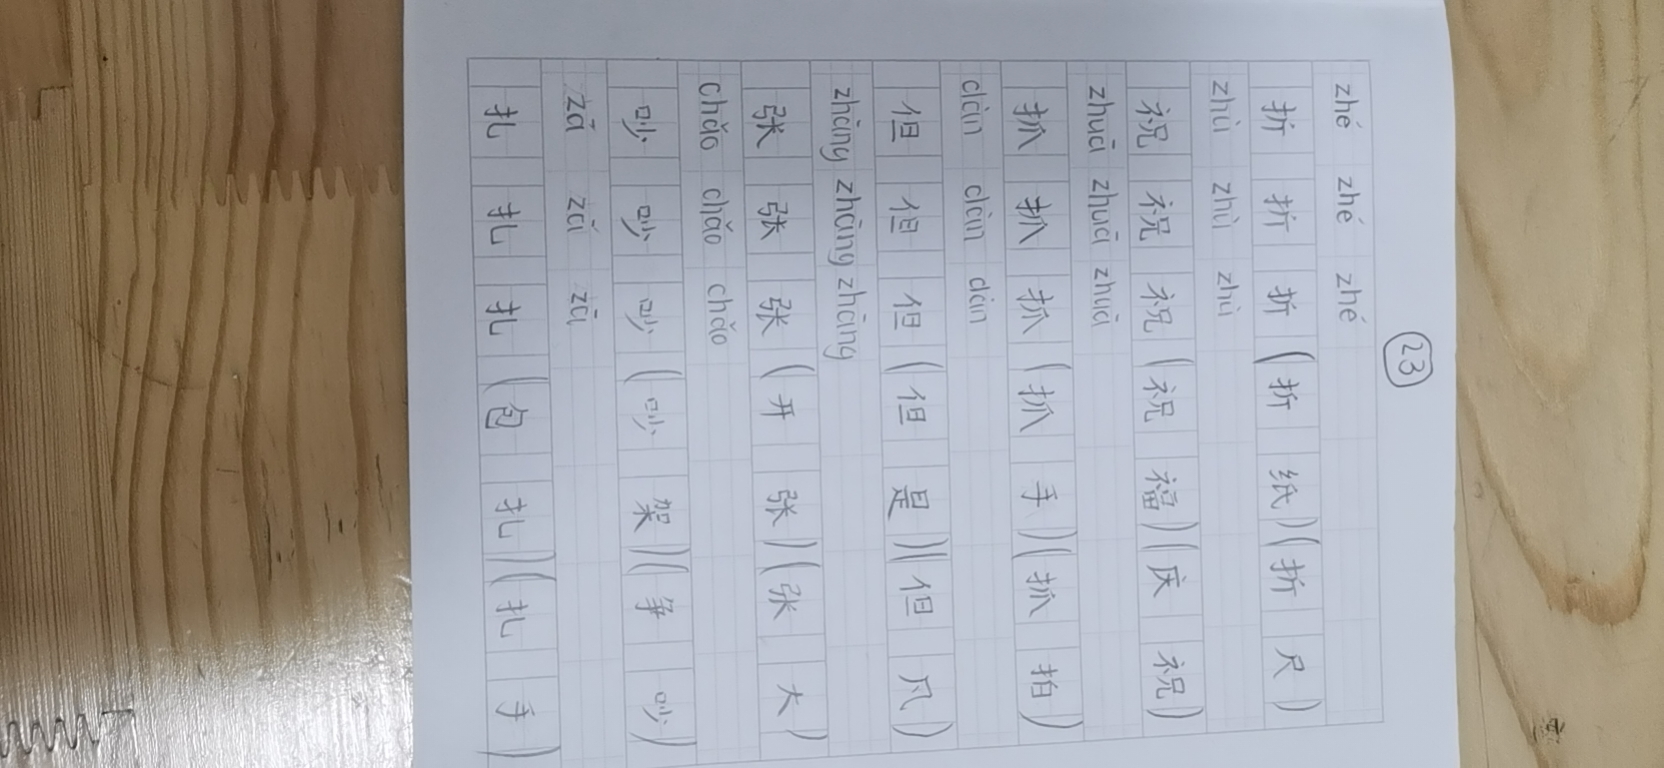 23
zhé zhé zhé
折折折(折纸)(折尺)
zhù zhù zhù
祝祝祝(祝福)(庆祝)
zhuā zhuā zhuā
抓抓抓(抓手)(抓拍)
dàn dàn dàn
但但但(但是)(但凡)
zhāng zhāng zhāng
张张张(开张)(张大)
chǎo chǎo chǎo
吵吵吵(吵架)(争吵)
zā zā zā
扎扎扎(包扎)(扎手)